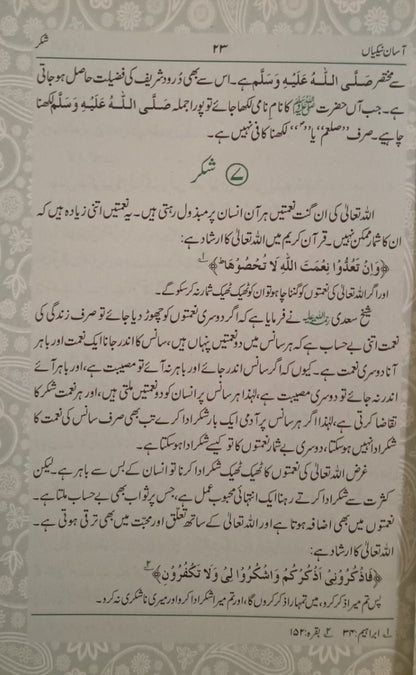 آسان نیکیاں ۲۳ شکر
سے مختصر صَلَّی اللّٰہُ عَلَیْہِ وَسَلَّم ہے۔ اس سے بھی دُرود شریف کی فضیلت حاصل ہو جاتی
ہے۔ جب آں حضرت ﷺ کا نامِ نامی لکھا جائے تو پورا جملہ صَلَّی اللّٰہُ عَلَیْہِ وَسَلَّم لکھنا
چاہیے۔ صرف ”صلعم“ یا ”ؐ“ لکھنا کافی نہیں ہے۔
۷ شکر
اللہ تعالیٰ کی ان گنت نعمتیں ہر آن انسان پر مبذول رہتی ہیں۔ یہ نعمتیں اتنی زیادہ ہیں کہ
ان کا شمار ممکن نہیں۔ قرآن کریم میں اللہ تعالیٰ کا ارشاد ہے:
﴿وَاِنْ تَعُدُّوْا نِعْمَتَ اللّٰہِ لَا تُحْصُوْهَا ؕ﴾ ۱
اور اگر اللہ تعالیٰ کی نعمتوں کو گننا چاہو تو ان کو ٹھیک ٹھیک شمار نہ کر سکو گے۔
شیخ سعدی رحمۃ اللہ علیہ نے فرمایا ہے کہ اگر دوسری نعمتوں کو چھوڑ دیا جائے تو صرف زندگی کی
نعمت اتنی بے حساب ہے کہ ہر سانس میں دو نعمتیں پنہاں ہیں، سانس کا اندر جانا ایک نعمت اور باہر
آنا دوسری نعمت ہے۔ کیوں کہ اگر سانس اندر جائے اور باہر نہ آئے تو مصیبت ہے، اور باہر آئے
اندر نہ جائے تو دوسری مصیبت ہے، لہٰذا ہر سانس پر انسان کو دو نعمتیں ملتی ہیں، اور ہر نعمت شکر کا
تقاضا کرتی ہے، لہٰذا اگر ہر سانس پر آدمی ایک بار شکر ادا کرے تب بھی صرف سانس کی نعمت کا
شکر ادا نہیں ہو سکتا، دوسری بے شمار نعمتوں کا تو کیسے شکر ادا ہو سکتا ہے۔
غرض اللہ تعالیٰ کی نعمتوں کا ٹھیک ٹھیک شکر ادا کرنا تو انسان کے بس سے باہر ہے۔ لیکن
کثرت سے شکر ادا کرتے رہنا ایک انتہائی محبوب عمل ہے، جس پر ثواب بھی بے حساب ملتا ہے۔
نعمتوں میں بھی اضافہ ہوتا ہے اور اللہ تعالیٰ کے ساتھ تعلّق اور محبّت میں بھی ترقی ہوتی ہے۔
اللہ تعالیٰ کا ارشاد ہے:
﴿فَاذْكُرُوْنِیْۤ اَذْكُرْكُمْ وَاشْكُرُوْا لِیْ وَلَا تَكْفُرُوْنِ﴾ ۲
پس تم میرا ذکر کرو، میں تمہارا ذکر کروں گا، اور تم میرا شکر ادا کرو اور میری ناشکری نہ کرو۔
۱ ابراہیم: ۳۴ ۲ بقرہ: ۱۵۲